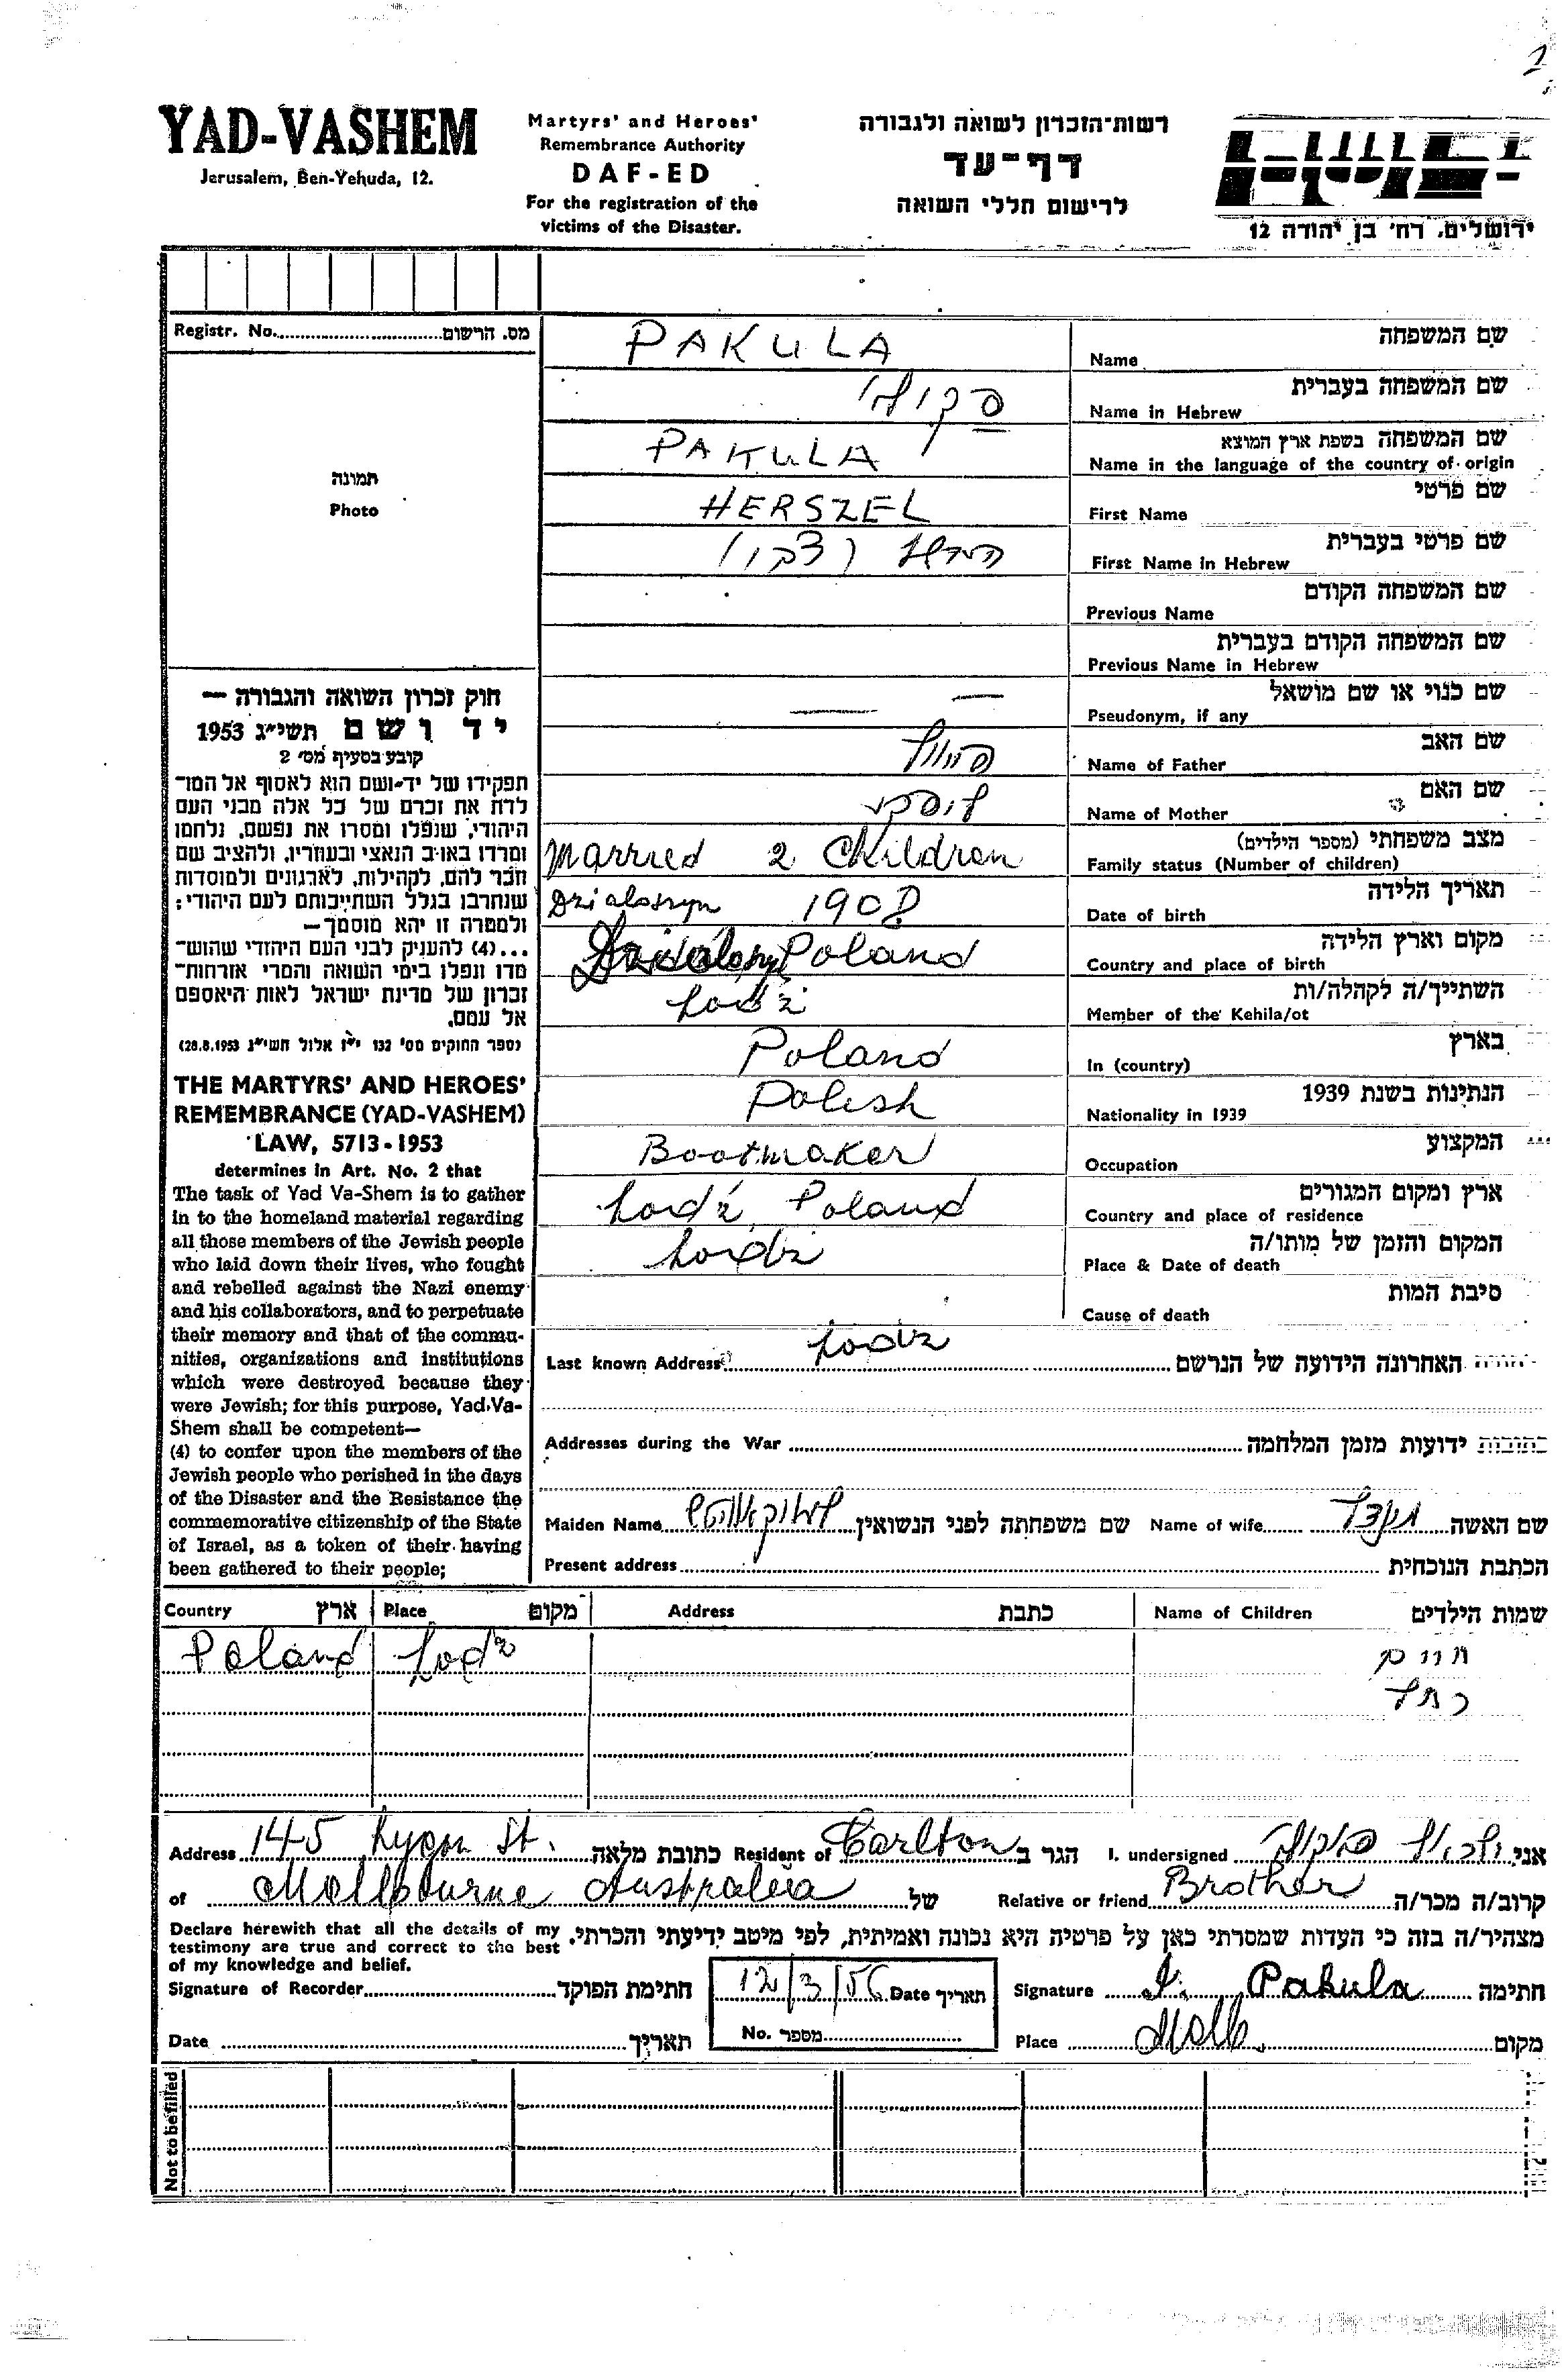 YAD-VASHEM
Jerusalem, Ben-Yehuda, 12.
Martyrs' and Heroes'
Remembrance Authority
DAF-ED
For the registration of the
victims of the Disaster.
רשות־הזכרון לשואה ולגבורה
דף־עד
לרישום חללי השואה
ירושלים. רח' בן יהודה 12
Registr. No. מס. הרישום
תמונה
Photo
PAKULA
שם המשפחה
Name
שם המשפחה בעברית
Name in Hebrew
PAKULA
שם המשפחה בשפת ארץ המוצא
Name in the language of the country of origin
HERSZEL
שם פרטי
First Name
שם פרטי בעברית
First Name in Hebrew
שם המשפחה הקודם
Previous Name
שם המשפחה הקודם בעברית
Previous Name in Hebrew
— —
שם כנוי או שם מושאל
Pseudonym, if any
שם האב
Name of Father
שם האם
Name of Mother
Married 2 Children
מצב משפחתי (מספר הילדים)
Family status (Number of children)
Dzialoszyn 1908
תאריך הלידה
Date of birth
Poland
מקום וארץ הלידה
Country and place of birth
Lodz
השתייך/ה לקהלה/ות
Member of the Kehila/ot
Poland
בארץ
In (country)
Polish
הנתינות בשנת 1939
Nationality in 1939
Bootmaker
המקצוע
Occupation
Lodz, Poland
ארץ ומקום המגורים
Country and place of residence
Lodz
המקום והזמן של מותו/ה
Place & Date of death
סיבת המות
Cause of death
Last known Address Lodz האחרונה הידועה של הנרשם
Addresses during the War כתובות ידועות מזמן המלחמה
Maiden Name שם משפחתה לפני הנשואין Name of wife שם האשה
Present address הכתבת הנוכחית
חוק זכרון השואה והגבורה —
יד ושם תשי״ג 1953
קובע בסעיף מס׳ 2
תפקידו של יד־ושם הוא לאסוף אל המו־
לדת את זכרם של כל אלה מבני העם
היהודי, שנפלו ומסרו את נפשם, נלחמו
ומרדו באויב הנאצי ובעוזריו, ולהציב שם
וזכר להם, לקהילות, לארגונים ולמוסדות
שנחרבו בגלל השתייכותם לעם היהודי;
ולמטרה זו יהא מוסמך—
...(4) להעניק לבני העם היהודי שהוש־
מדו ונפלו בימי השואה והמרי אזרחות־
זכרון של מדינת ישראל לאות היאספם
אל עמם.
(ספר החוקים מס׳ 132 י״ז אלול תשי״ג 28.8.1953)
THE MARTYRS' AND HEROES'
REMEMBRANCE (YAD-VASHEM)
LAW, 5713-1953
determines in Art. No. 2 that
The task of Yad Va-Shem is to gather
in to the homeland material regarding
all those members of the Jewish people
who laid down their lives, who fought
and rebelled against the Nazi enemy
and his collaborators, and to perpetuate
their memory and that of the commu-
nities, organizations and institutions
which were destroyed because they
were Jewish; for this purpose, Yad-Va-
Shem shall be competent—
(4) to confer upon the members of the
Jewish people who perished in the days
of the Disaster and the Resistance the
commemorative citizenship of the State
of Israel, as a token of their having
been gathered to their people;
Country ארץ Place מקום Address כתבת Name of Children שמות הילדים
Poland Lodz חיים
רחל
Address 145 Lygon St. כתובת מלאה Resident of Carlton הגר ב I. undersigned אני
of Mellbourne Australia של Relative or friend Brother קרוב/ה מכר/ה
Declare herewith that all the details of my
testimony are true and correct to the best
of my knowledge and belief.
מצהיר/ה בזה כי העדות שמסרתי כאן על פרטיה היא נכונה ואמיתית, לפי מיטב ידיעתי והכרתי.
Signature of Recorder חתימת הפוקד 12/3/56 Date תאריך Signature Pakula חתימה
Date תאריך No. מספר Place Melb. מקום
Not to be filled